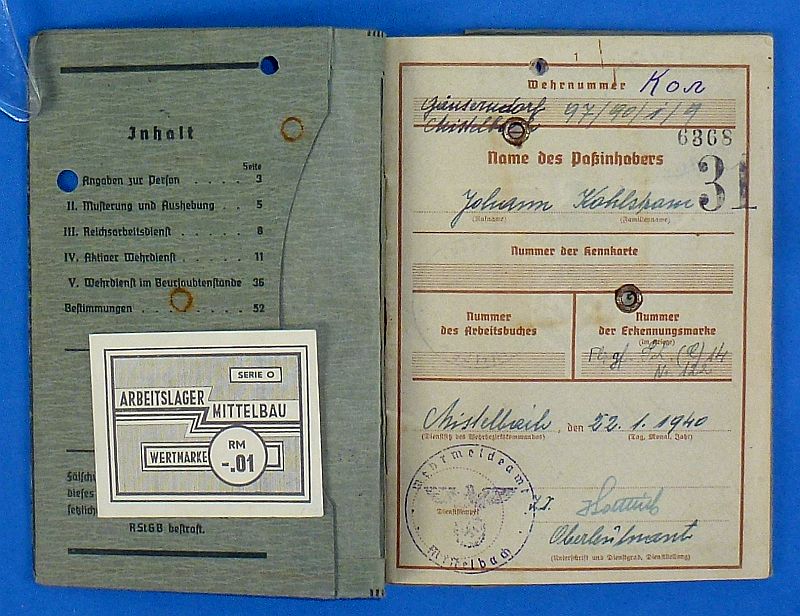 Inhalt
Seite
Angaben zur Person . . . . . 3
II. Musterung und Aushebung . . . 5
III. Reichsarbeitsdienst . . . . . 8
IV. Aktiver Wehrdienst . . . . . 11
V. Wehrdienst im Beurlaubtenstande 36
Bestimmungen . . . . . . . 52
SERIE O
ARBEITSLAGER
MITTELBAU
WERTMARKE
RM
-.01
Fälsch
dieses
setzlich
RStGB bestraft.
1
Wehrnummer Кол
Gänserndorf 97/90/1/9
Mistelbach
6368
31
Name des Paßinhabers
Johann
(Rufname) (Familienname)
Nummer der Kennkarte
Nummer
des Arbeitsbuches
Nummer
der Erkennungsmarke
(im Kriege)
14
No 122
Mistelbach, den 22. 1. 1940
(Dienstsitz des Wehrbezirkskommandos) (Tag, Monat, Jahr)
Wehrmeldeamt
Dienststempel
Mistelbach
Oberleutnant
(Unterschrift und Dienstgrad, Dienststellung)